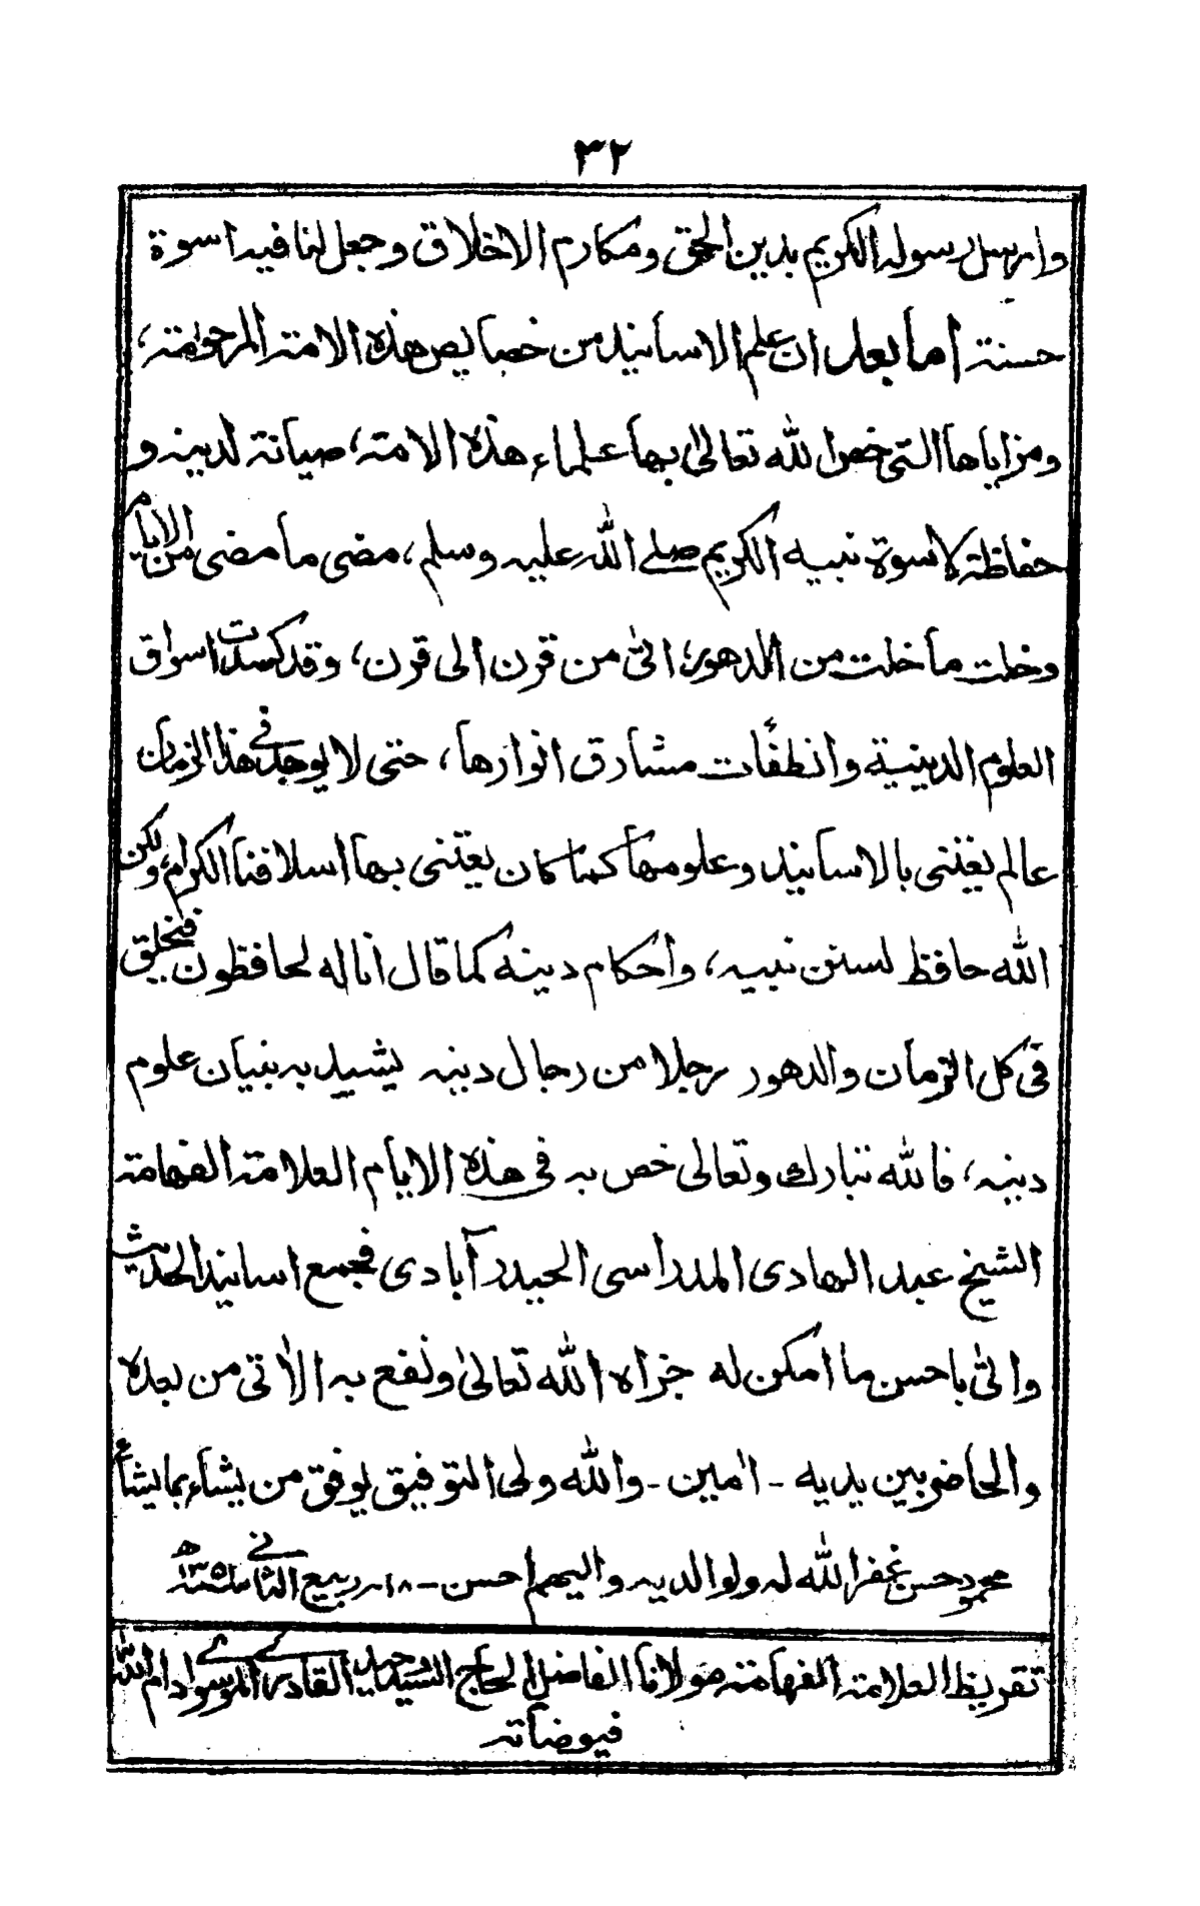 ٣٢
وارسل رسوله الكريم بدين الحق ومكارم الاخلاق وجعل لنا فيه اسوة
حسنة اما بعد ان علم الاسانيد من خصايص هذه الامة المرحومة،
ومزاياها التي خص الله تعالىٰ بها علماء هذه الامة، صيانة لدينه و
حفاظة لاسوة نبيه الكريم صلے الله عليه وسلم، مضى ما مضى من الايام
وخلت ما خلت من الدهور، اتىٰ من قرن الى قرن، وقد كسدت اسواق
العلوم الدينية وانطفأت مشارق انوارها، حتى لا يوجد في هذا الزمان
عالم يعتنى بالاسانيد وعلومها كما كان يعتنى بها اسلافنا الكرام، ولكن
الله حافظ لسنن نبيه، واحكام دينه كما قال انا له لحافظون فيخلق
فى كل الزمان والدهور رجلا من رجال دينه يشيد به بنيان علوم
دينه، فالله تبارك وتعالى خص به فى هذه الايام العلامة الفهامة
الشيخ عبد الهادى المدراسى الحيدرآبادى فجمع اسانيد الحديث
واتىٰ باحسن ما امكن له جزاه الله تعالىٰ ونفع به الاٰتى من بعده
والحاضر بين يديه - اٰمين - والله ولى التوفيق يوفق من يشاء بما يشاء
محمود حسن غفر الله له ولوالديه واليهم احسن - ١٨ ربيع الثاني سنة ١٣٥١ھ
تقريظ العلامة الفهامة مولانا الفاضل الحاج السيد القادرے الموسوے ادام الله
فيوضاته